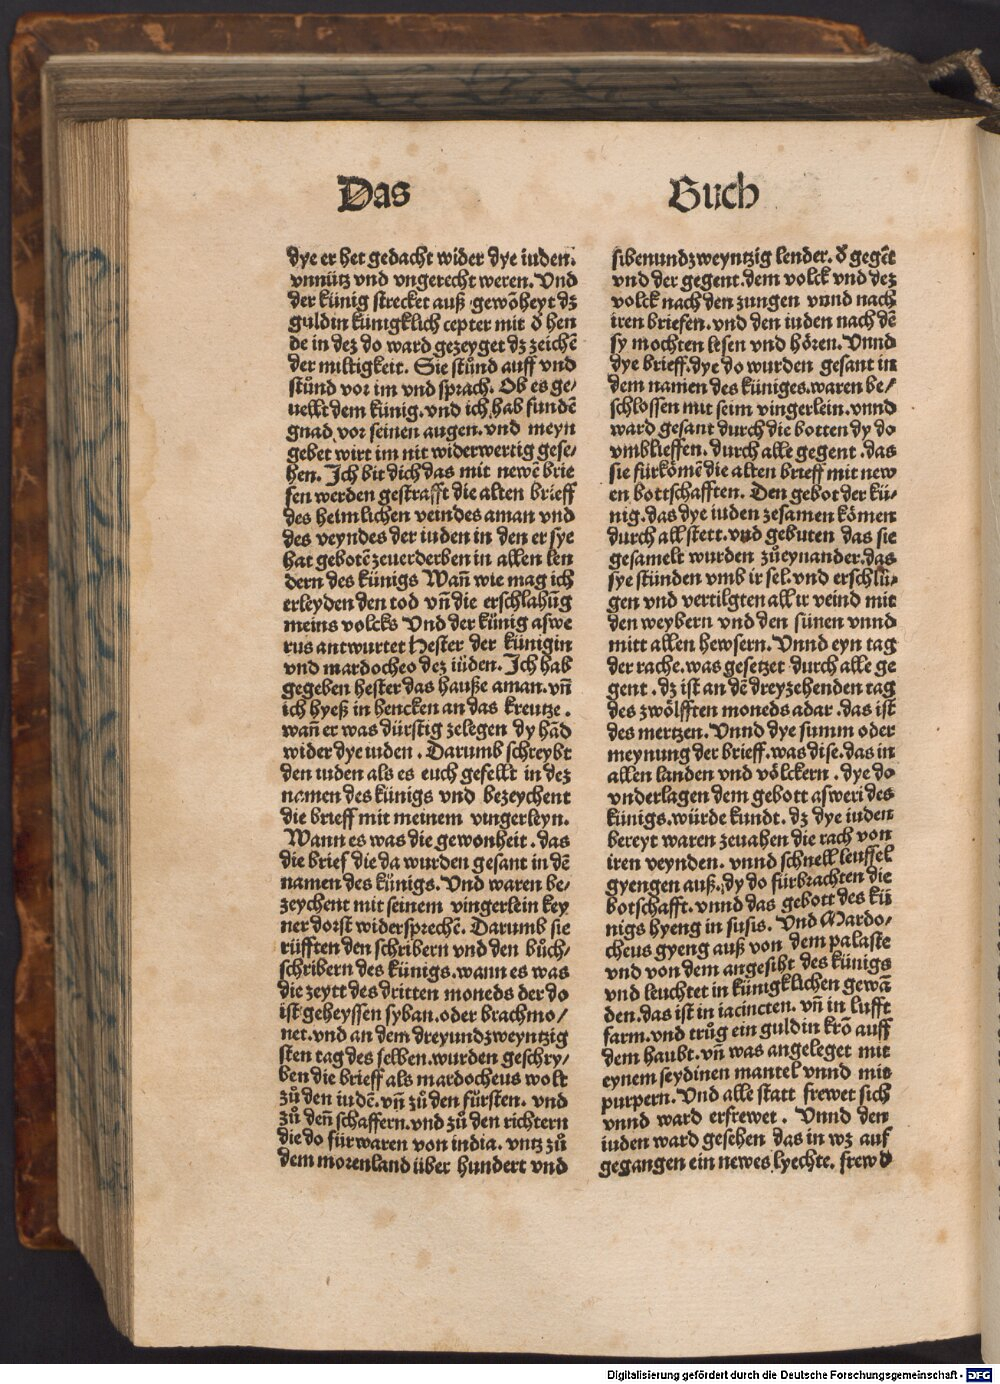 Das
Buch
dye er het gedacht wider dye iuden.
vnnütz vnd vngerecht weren. Vnd
der künig strecket auß gewõheyt dz
guldin künigklich cepter mit ð hen
de in dez do ward gezeyget dz zeichẽ
der miltigkeit. Sie stůnd auff vnd
stůnd vor im vnd sprach. Ob es ge/
uellt dem künig. vnd ich hab fundẽ
gnad vor seinen augen. vnd meyn
gebet wirt im nit widerwertig gese/
hen. Ich bit dich das mit newẽ brie
fen werden gestrafft die alten brieff
des heimlichen veindes aman vnd
des veyndes der iuden in den er sye
hat gebotẽ zeuerderben in allen len
dern des künigs Wañ wie mag ich
erleyden den tod vñ die erschlahũg
meins volcks Vnd der künig aswe
rus antwurtet Hester der künigin
vnd mardocheo dez iüden. Ich hab
gegeben hester das hauße aman. vñ
ich hyeß in hencken an das kreutze.
wañ er was dürstig zelegen dy hãd
wider dye iuden. Darumb schreybt
den iuden als es euch gefellt in dez
namen des künigs vnd bezeychent
die brieff mit meinem vingerleyn.
Wann es was die gewonheit. das
die brief die da wurden gesant in dẽ
namen des künigs. Vnd waren be/
zeychent mit seinem vingerlein key
ner dorst widersprechẽ. Darumb sie
rüfften den schribern vnd den bůch/
schribern des künigs. wann es was
die zeytt des dritten moneds der do
ist geheyssen syban. oder brachmo/
net. vnd an dem dreyundzweyntzig
sten tag des selben. wurden geschry/
ben die brieff als mardocheus wolt
zů den iudẽ. vñ zů den fürsten. vnd
zů deñ schaffern. vnd zů den richtern
die do für waren von india. vntz zů
dem morenland über hundert vnd
sibenundzweyntzig lender. ð gegẽt
vnd der gegent. dem volck vnd dez
volck nach den zungen vnnd nach
iren briefen. vnd den iuden nach dẽ
sy mochten lesen vnd hören. Vnnd
dye brieff. dye do wurden gesant in
dem namen des küniges. waren be/
schlossen mit seim vingerlein. vnnd
ward gesant durch die botten dy do
vmblieffen. durch alle gegent. das
sie fürkömẽ die alten brieff mit new
en bottschafften. Den gebot der kü/
nig. das dye iuden zesamen kömen
durch all stett. vnd gebuten das sie
gesamelt wurden zůeynander. das
sye stünden vmb ir sel. vnd erschlü/
gen vnd vertilgten all ir veind mit
den weybern vnd den sünen vnnd
mitt allen hewsern. Vnnd eyn tag
der rache. was gesetzet durch alle ge
gent. dz ist an dẽ dreyzehenden tag
des zwölfften moneds adar. das ist
des mertzen. Vnnd dye summ oder
meynung der brieff. was dise. das in
allen landen vnd völckern. dye do
vnderlagen dem gebott asweri des
künigs. würde kundt. dz dye iuden
bereyt waren zeuahen die rach von
iren veynden. vnnd schnell leuffel
gyengen auß. dy do fürbrachten die
botschafft. vnnd das gebott des kü
nigs hyeng in susis. Vnd Mardo/
cheus gyeng auß von dem palaste
vnd von dem angesiht des künigs
vnd leuchtet in künigklichen gewã
den. das ist in iacincten. vñ in lufft
farm. vnd trůg ein guldin krõ auff
dem haubt. vñ was angeleget mit
eynem seydinen mantel vnnd mit
purpern. Vnd alle statt frewet sich
vnnd ward erfrewet. Vnnd den
iuden ward gesehen das in wz auf
gegangen ein newes lyechte. frewd
Digitalisierung gefördert durch die Deutsche Forschungsgemeinschaft - DFG